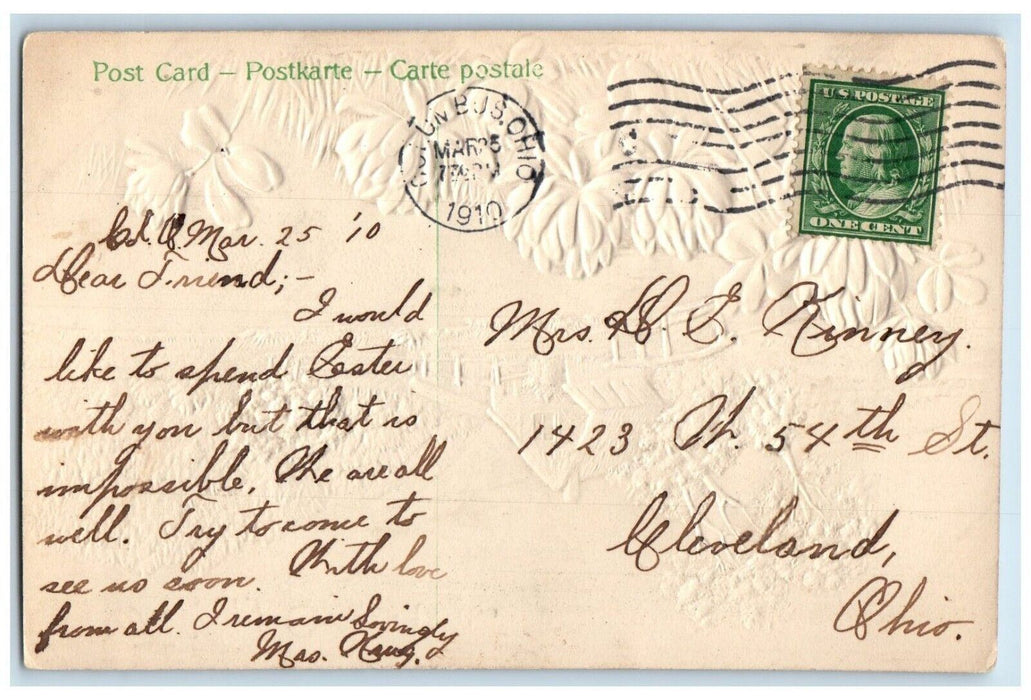 Post Card – Postkarte – Carte postale
COLUMBUS, OHIO
MAR 25
1910
U.S. POSTAGE
ONE CENT
Mar. 25 '10
Dear Friend;–
I would
like to spend Easter
with you but that is
impossible, We are all
well. Try to come to
see us soon. With love
from all. I remain Lovingly
Mrs.
Mrs. D. E. Kinney.
1423 W. 54th St.
Cleveland,
Ohio.